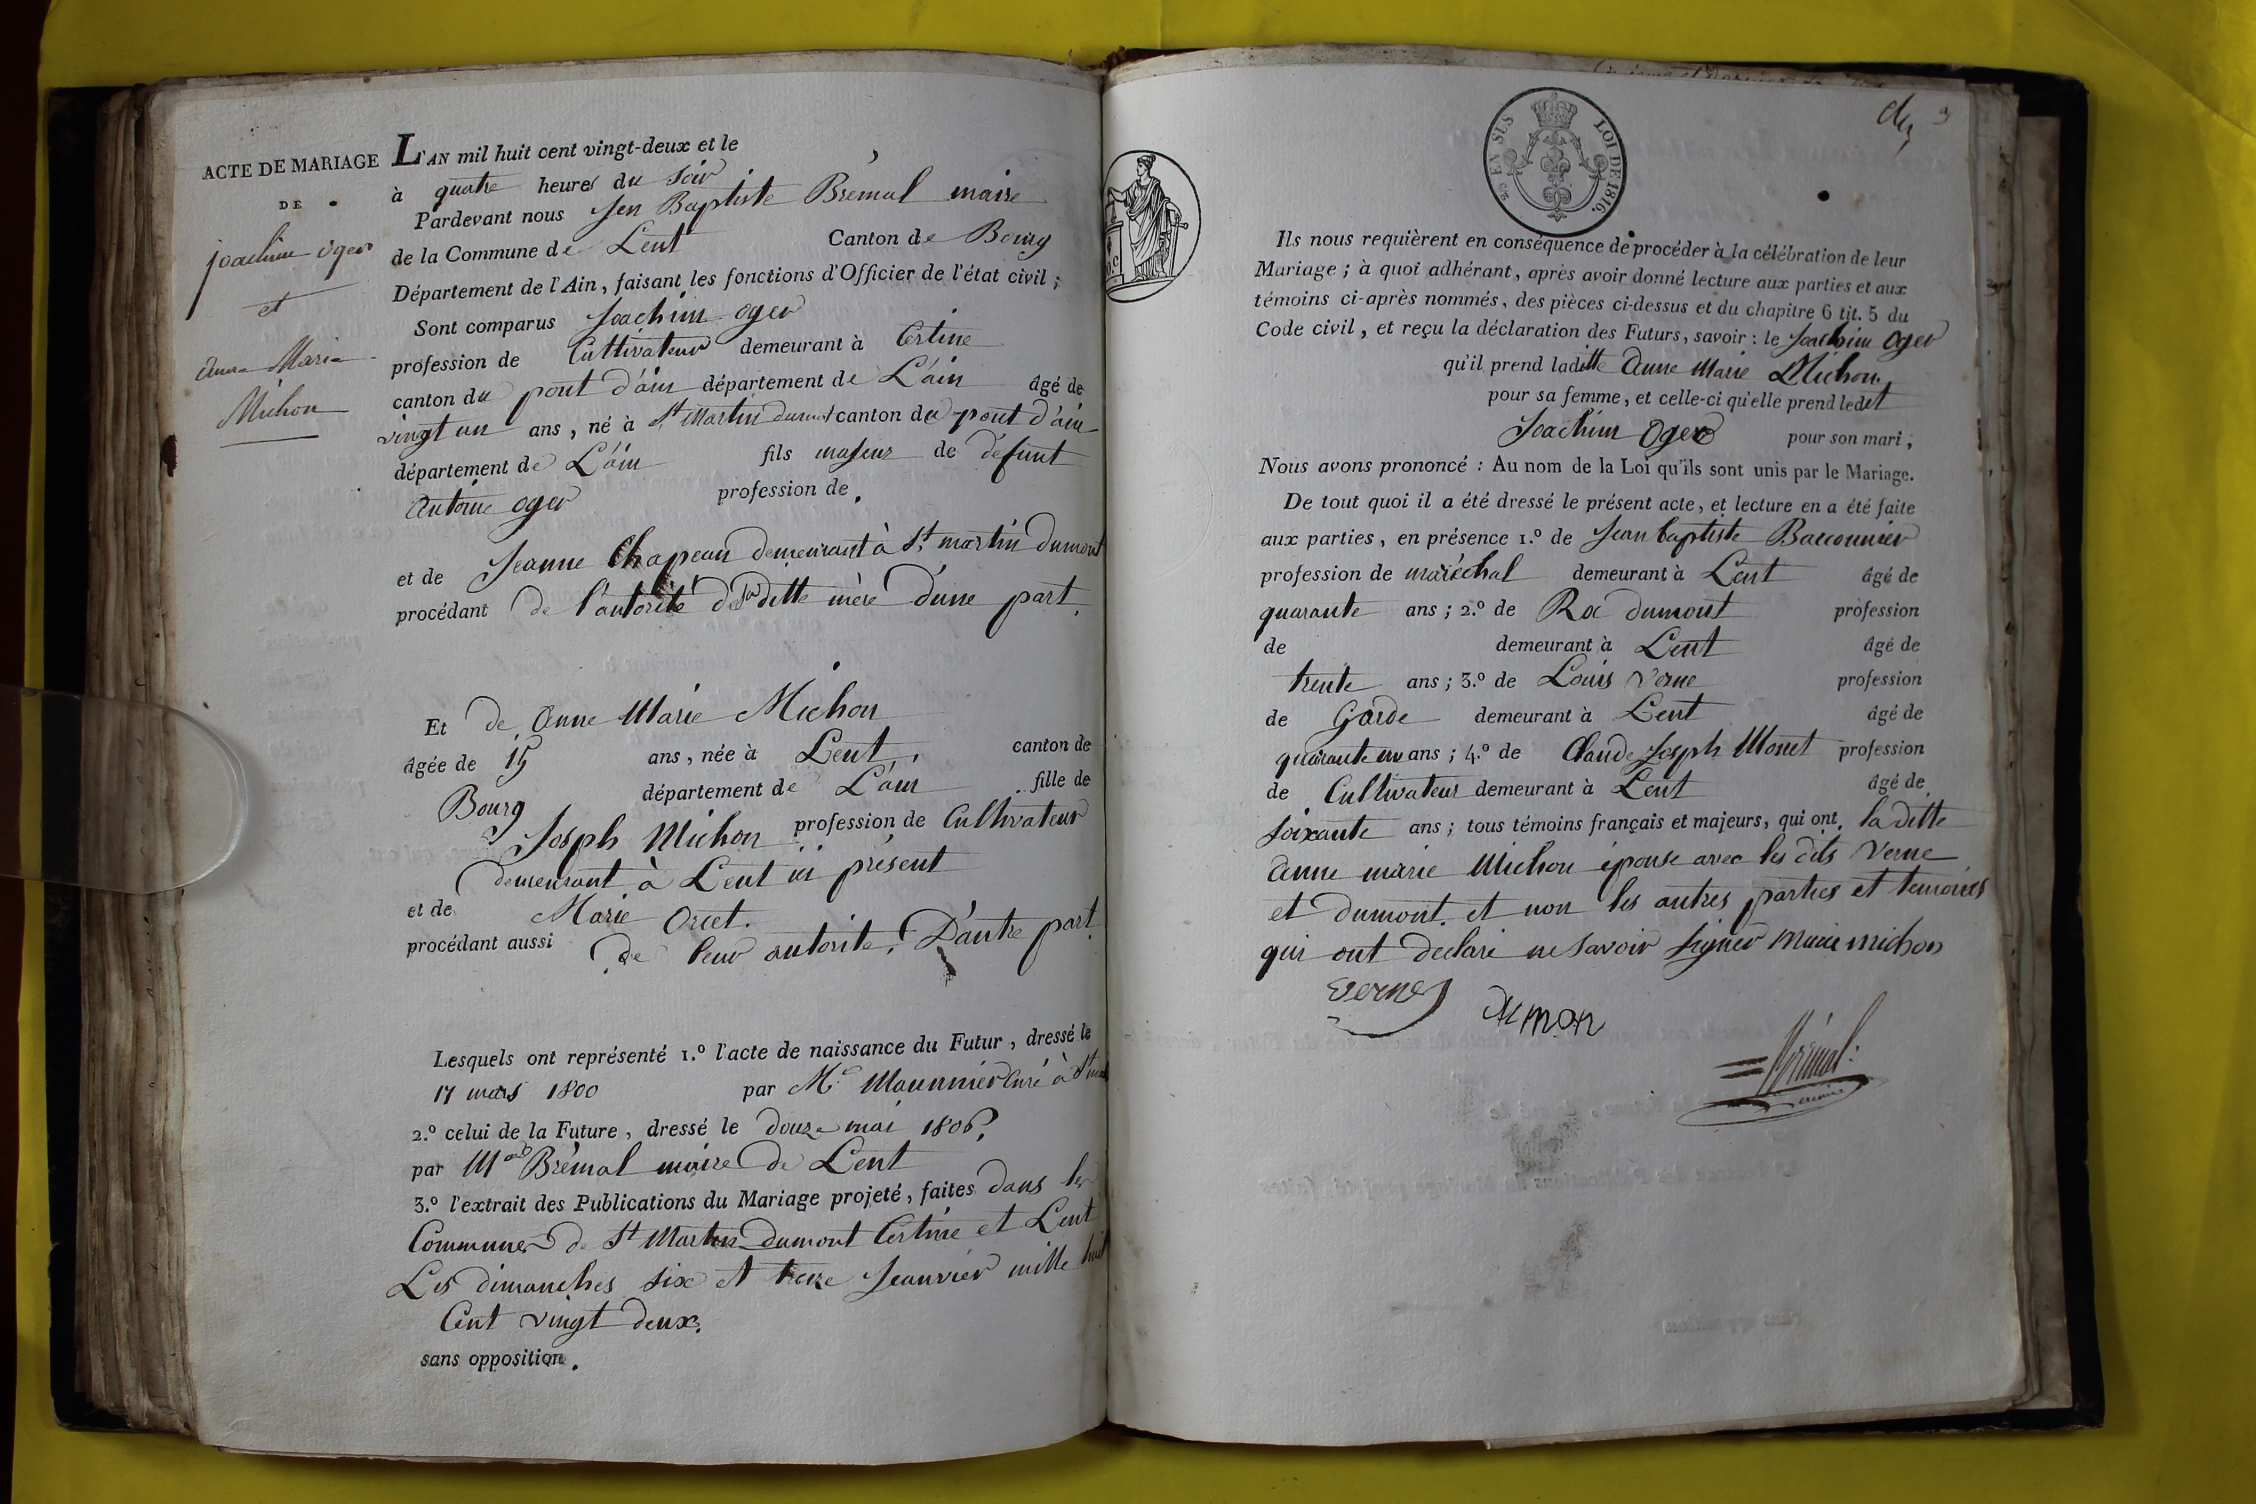 ACTE DE MARIAGE
DE
joachim oger
et
anne Marie
Michon
L'AN mil huit cent vingt-deux et le
à quatre heures du soir
Pardevant nous Jen Baptiste Brémal maire
de la Commune de Lent Canton de Bourg
Département de l'Ain, faisant les fonctions d'Officier de l'état civil ;
Sont comparus Joachim oger
profession de Cultivateur demeurant à Certine
canton du pont d'ain département de L'ain âgé de
vingt un ans, né à St Martin dumont canton du pont d'ain
département de L'ain fils majeur de défunt
Antoine oger profession de
et de Jeanne Chapeau demeurant à St martin dumont
procédant de l'autorité de sa ditte mère d'une part.
Et de Anne Marie Michon
âgée de 15 ans, née à Lent canton de
Bourg département de L'ain fille de
Joseph Michon profession de Cultivateur
demeurant à Lent ici présent
et de Marie Orcet.
procédant aussi de leur autorite. D'autre part.
Lesquels ont représenté 1.º l'acte de naissance du Futur, dressé le
17 mars 1800 par Mr Maunnier Curé à St
2.º celui de la Future, dressé le douze mai 1806.
par Brémal maire de Lent
3.º l'extrait des Publications du Mariage projeté, faites dans les
Communes de St Martin dumont Certine et Lent
Les dimanches six et treize Jeanvier mille huit
Cent vingt deux.
sans opposition.
EN SUS
LOI DE 1816.
Ils nous requièrent en conséquence de procéder à la célébration de leur
Mariage ; à quoi adhérant, après avoir donné lecture aux parties et aux
témoins ci-après nommés, des pièces ci-dessus et du chapitre 6 tit. 5 du
Code civil, et reçu la déclaration des Futurs, savoir : le Joachim Oger
qu'il prend laditte Anne Marie Michon
pour sa femme, et celle-ci qu'elle prend ledet
Joachim Oger pour son mari ;
Nous avons prononcé : Au nom de la Loi qu'ils sont unis par le Mariage.
De tout quoi il a été dressé le présent acte, et lecture en a été faite
aux parties, en présence 1.º de Jean baptiste Baccounier
profession de maréchal demeurant à Lent âgé de
quarante ans ; 2.º de Roc dumont profession
de demeurant à Lent âgé de
trente ans ; 3.º de Louis Verne profession
de Garde demeurant à Lent âgé de
quarante un ans ; 4.º de Claude Joseph Monet profession
de Cultivateur demeurant à Lent âgé de
soixante ans ; tous témoins français et majeurs, qui ont la ditte
Anne marie Michon épouse avec les dits Verne
et dumont et non les autres parties et temoins
qui ont declaré ne savoir signer Marie michon
verne
dumon
Brémal